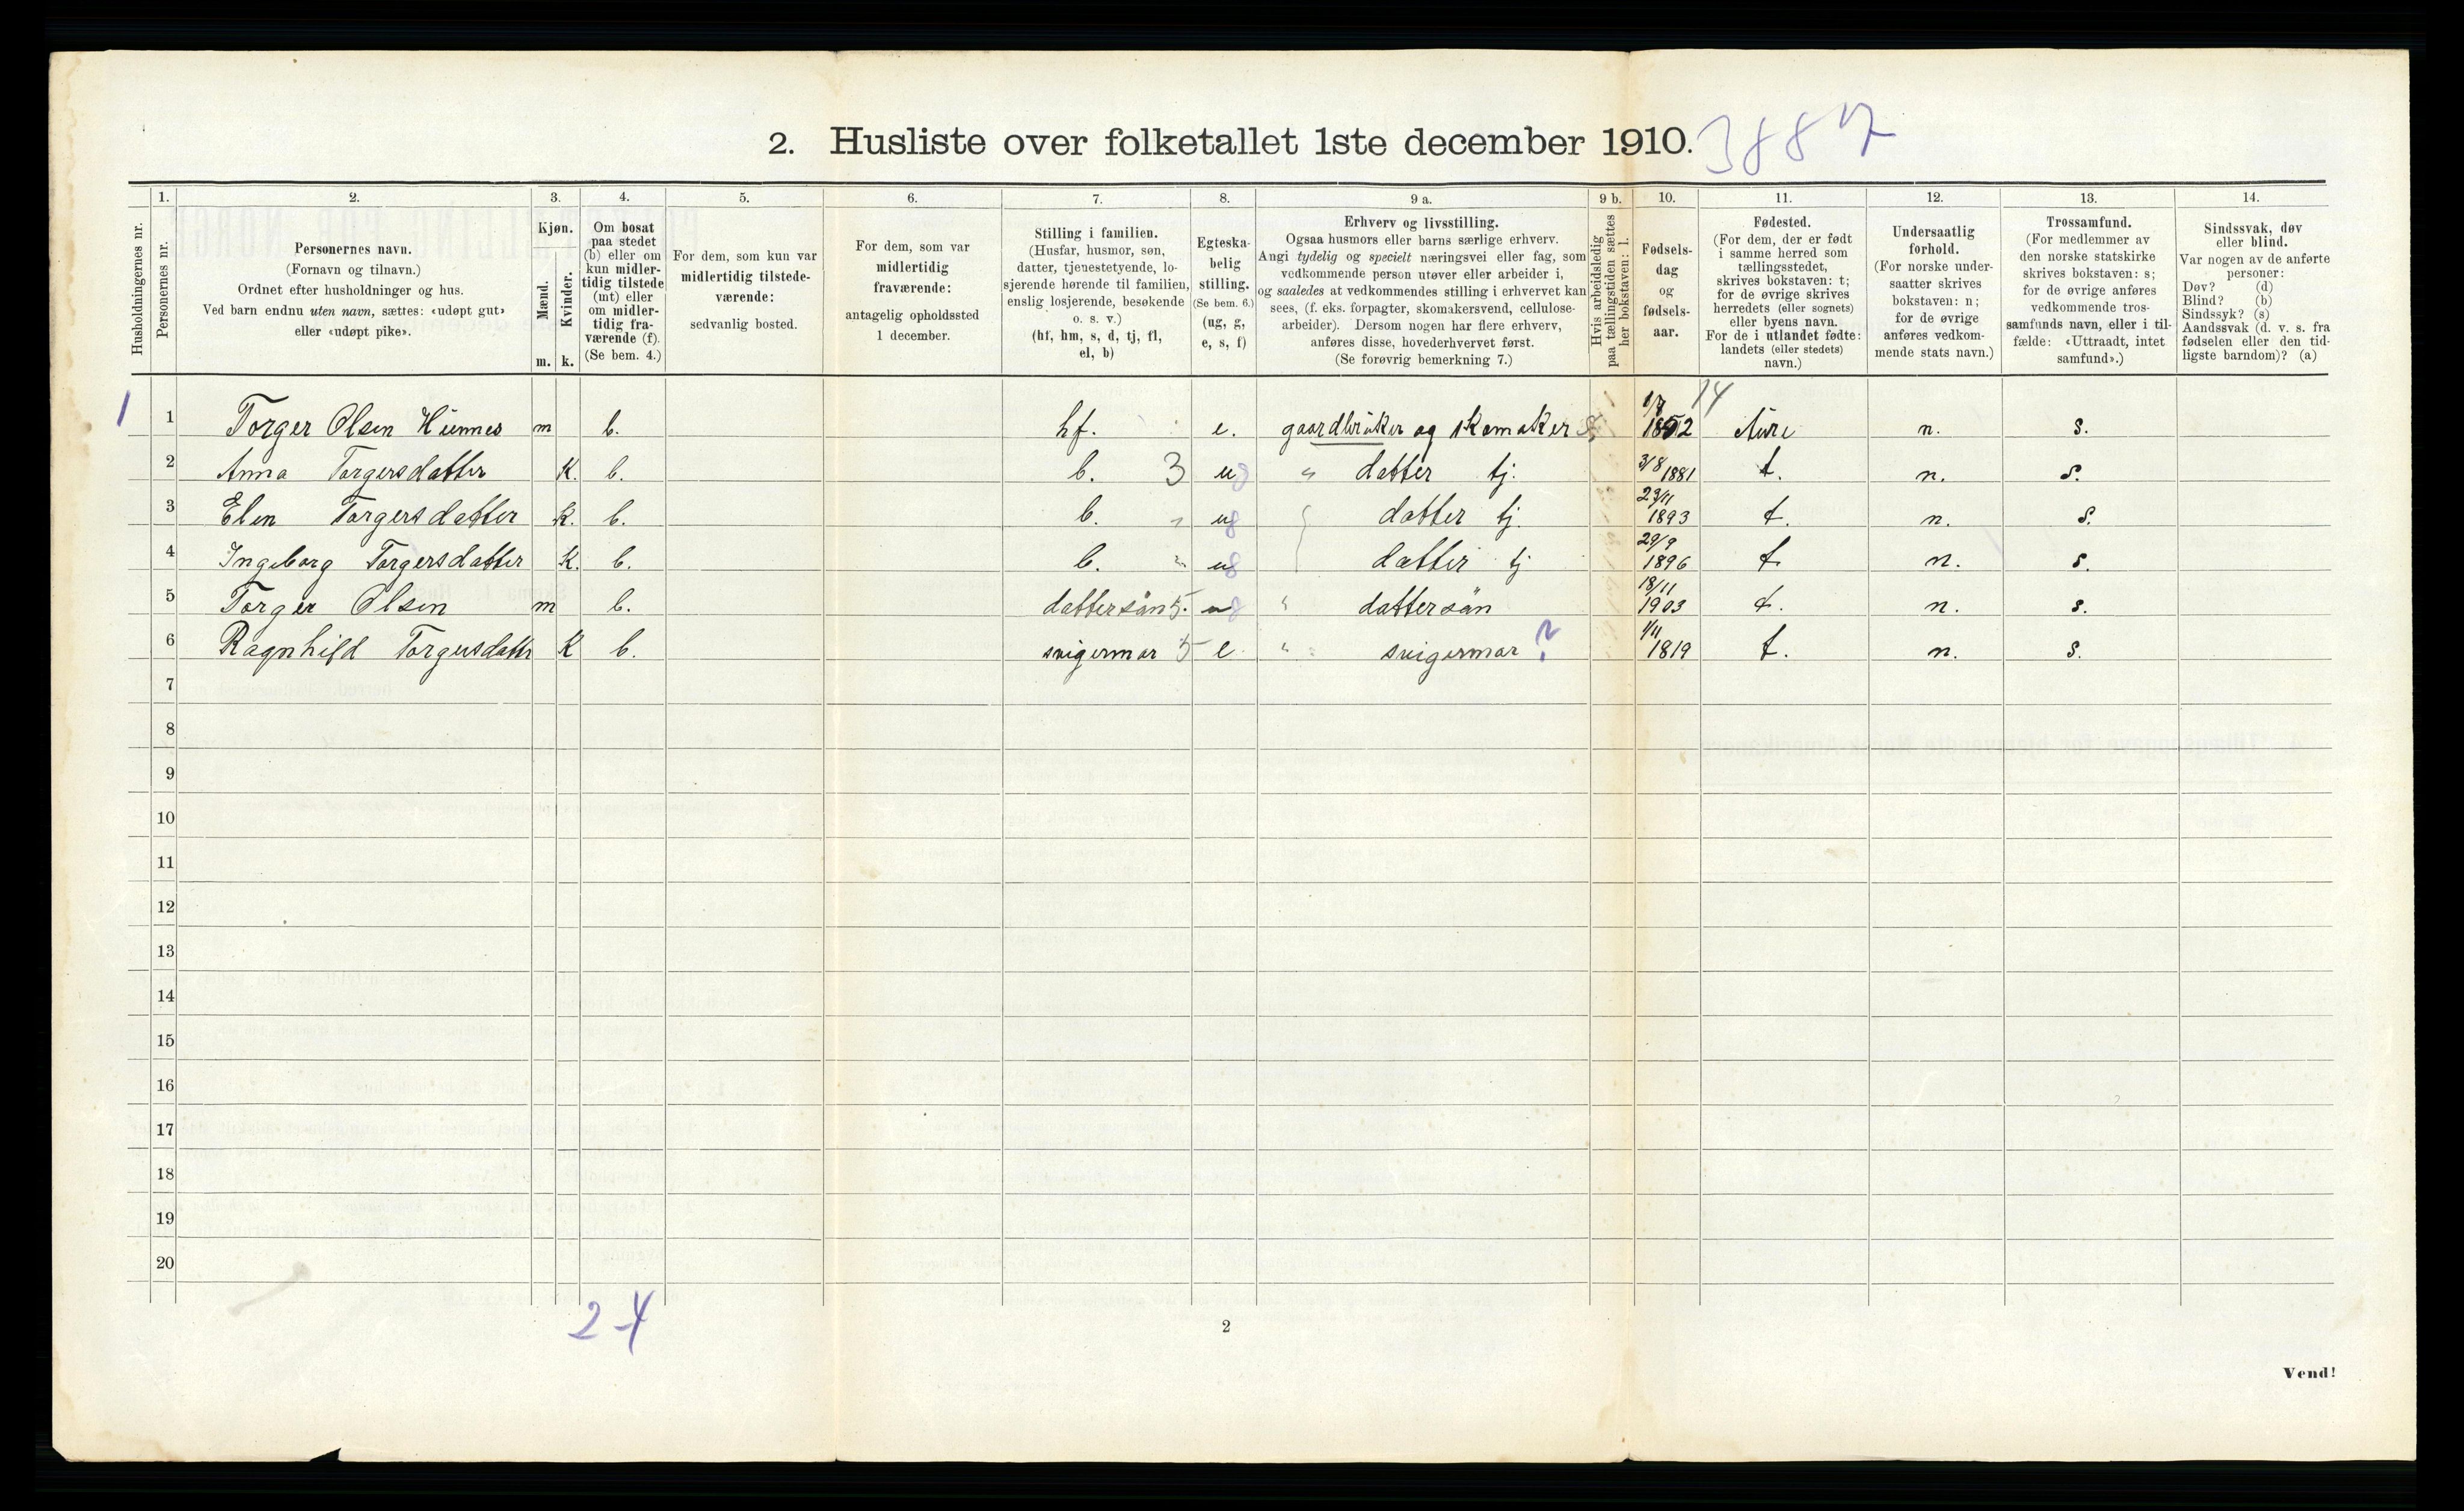 2. Husliste over folketallet 1ste december 1910. 3887
1. 2. 3. 4. 5. 6. 7. 8. 9 a. 9 b. 10. 11. 12. 13. 14.
Husholdningernes nr.
Personernes nr.
Personernes navn.
(Fornavn og tilnavn.)
Ordnet efter husholdninger og hus.
Ved barn endnu uten navn, sættes: «udøpt gut»
eller «udøpt pike».
Kjøn.
Mænd.
Kvinder.
m. k.
Om bosat
paa stedet
(b) eller om
kun midler-
tidig tilstede
(mt) eller
om midler-
tidig fra-
værende (f).
(Se bem. 4.)
For dem, som kun var
midlertidig tilstede-
værende:
sedvanlig bosted.
For dem, som var
midlertidig
fraværende:
antagelig opholdssted
1 december.
Stilling i familien.
(Husfar, husmor, søn,
datter, tjenestetyende, lo-
sjerende hørende til familien,
enslig losjerende, besøkende
o. s. v.)
(hf, hm, s, d, tj, fl,
el, b)
Egteska-
belig
stilling.
(Se bem. 6.)
(ug, g,
e, s, f)
Erhverv og livsstilling.
Ogsaa husmors eller barns særlige erhverv.
Angi tydelig og specielt næringsvei eller fag, som
vedkommende person utøver eller arbeider i,
og saaledes at vedkommendes stilling i erhvervet kan
sees, (f. eks. forpagter, skomakersvend, cellulose-
arbeider). Dersom nogen har flere erhverv,
anføres disse, hovederhvervet først.
(Se forøvrig bemerkning 7.)
Hvis arbeidsledig
paa tællingstiden sættes
her bokstaven: l.
Fødsels-
dag
og
fødsels-
aar.
Fødested.
(For dem, der er født
i samme herred som
tællingsstedet,
skrives bokstaven: t;
for de øvrige skrives
herredets (eller sognets)
eller byens navn.
For de i utlandet fødte:
landets (eller stedets)
navn.)
Undersaatlig
forhold.
(For norske under-
saatter skrives
bokstaven: n;
for de øvrige
anføres vedkom-
mende stats navn.)
Trossamfund.
(For medlemmer av
den norske statskirke
skrives bokstaven: s;
for de øvrige anføres
vedkommende tros-
samfunds navn, eller i til-
fælde: «Uttraadt, intet
samfund».)
Sindssvak, døv
eller blind.
Var nogen av de anførte
personer:
Døv? (d)
Blind? (b)
Sindssyk? (s)
Aandssvak (d. v. s. fra
fødselen eller den tid-
ligste barndom)? (a)
1 1 Torger Olsen m b. hf. e. gaardbruker og skomaker 1852 14 Aure n. s.
2 Anna Torgersdatter K. b. b. 3 u " datter tj. 3/8 1881 t. n. s.
3 Elen Torgersdatter k. b. b. " u datter tj. 23/11 1893 t. n. s.
4 Ingeborg Torgersdatter K. b. b. " u datter tj 29/9 1896 t. n. s.
5 Torger Olsen m b. dattersøn 5. u " dattersøn 18/11 1903 t. n. s.
6 Ragnhild Torgersdattr K b. svigermor 5 e " svigermor ? 1/11 1819 t. n. s.
7
8
9
10
11
12
13
14
15
16
17
18
19
20
2-4
2
Vend!